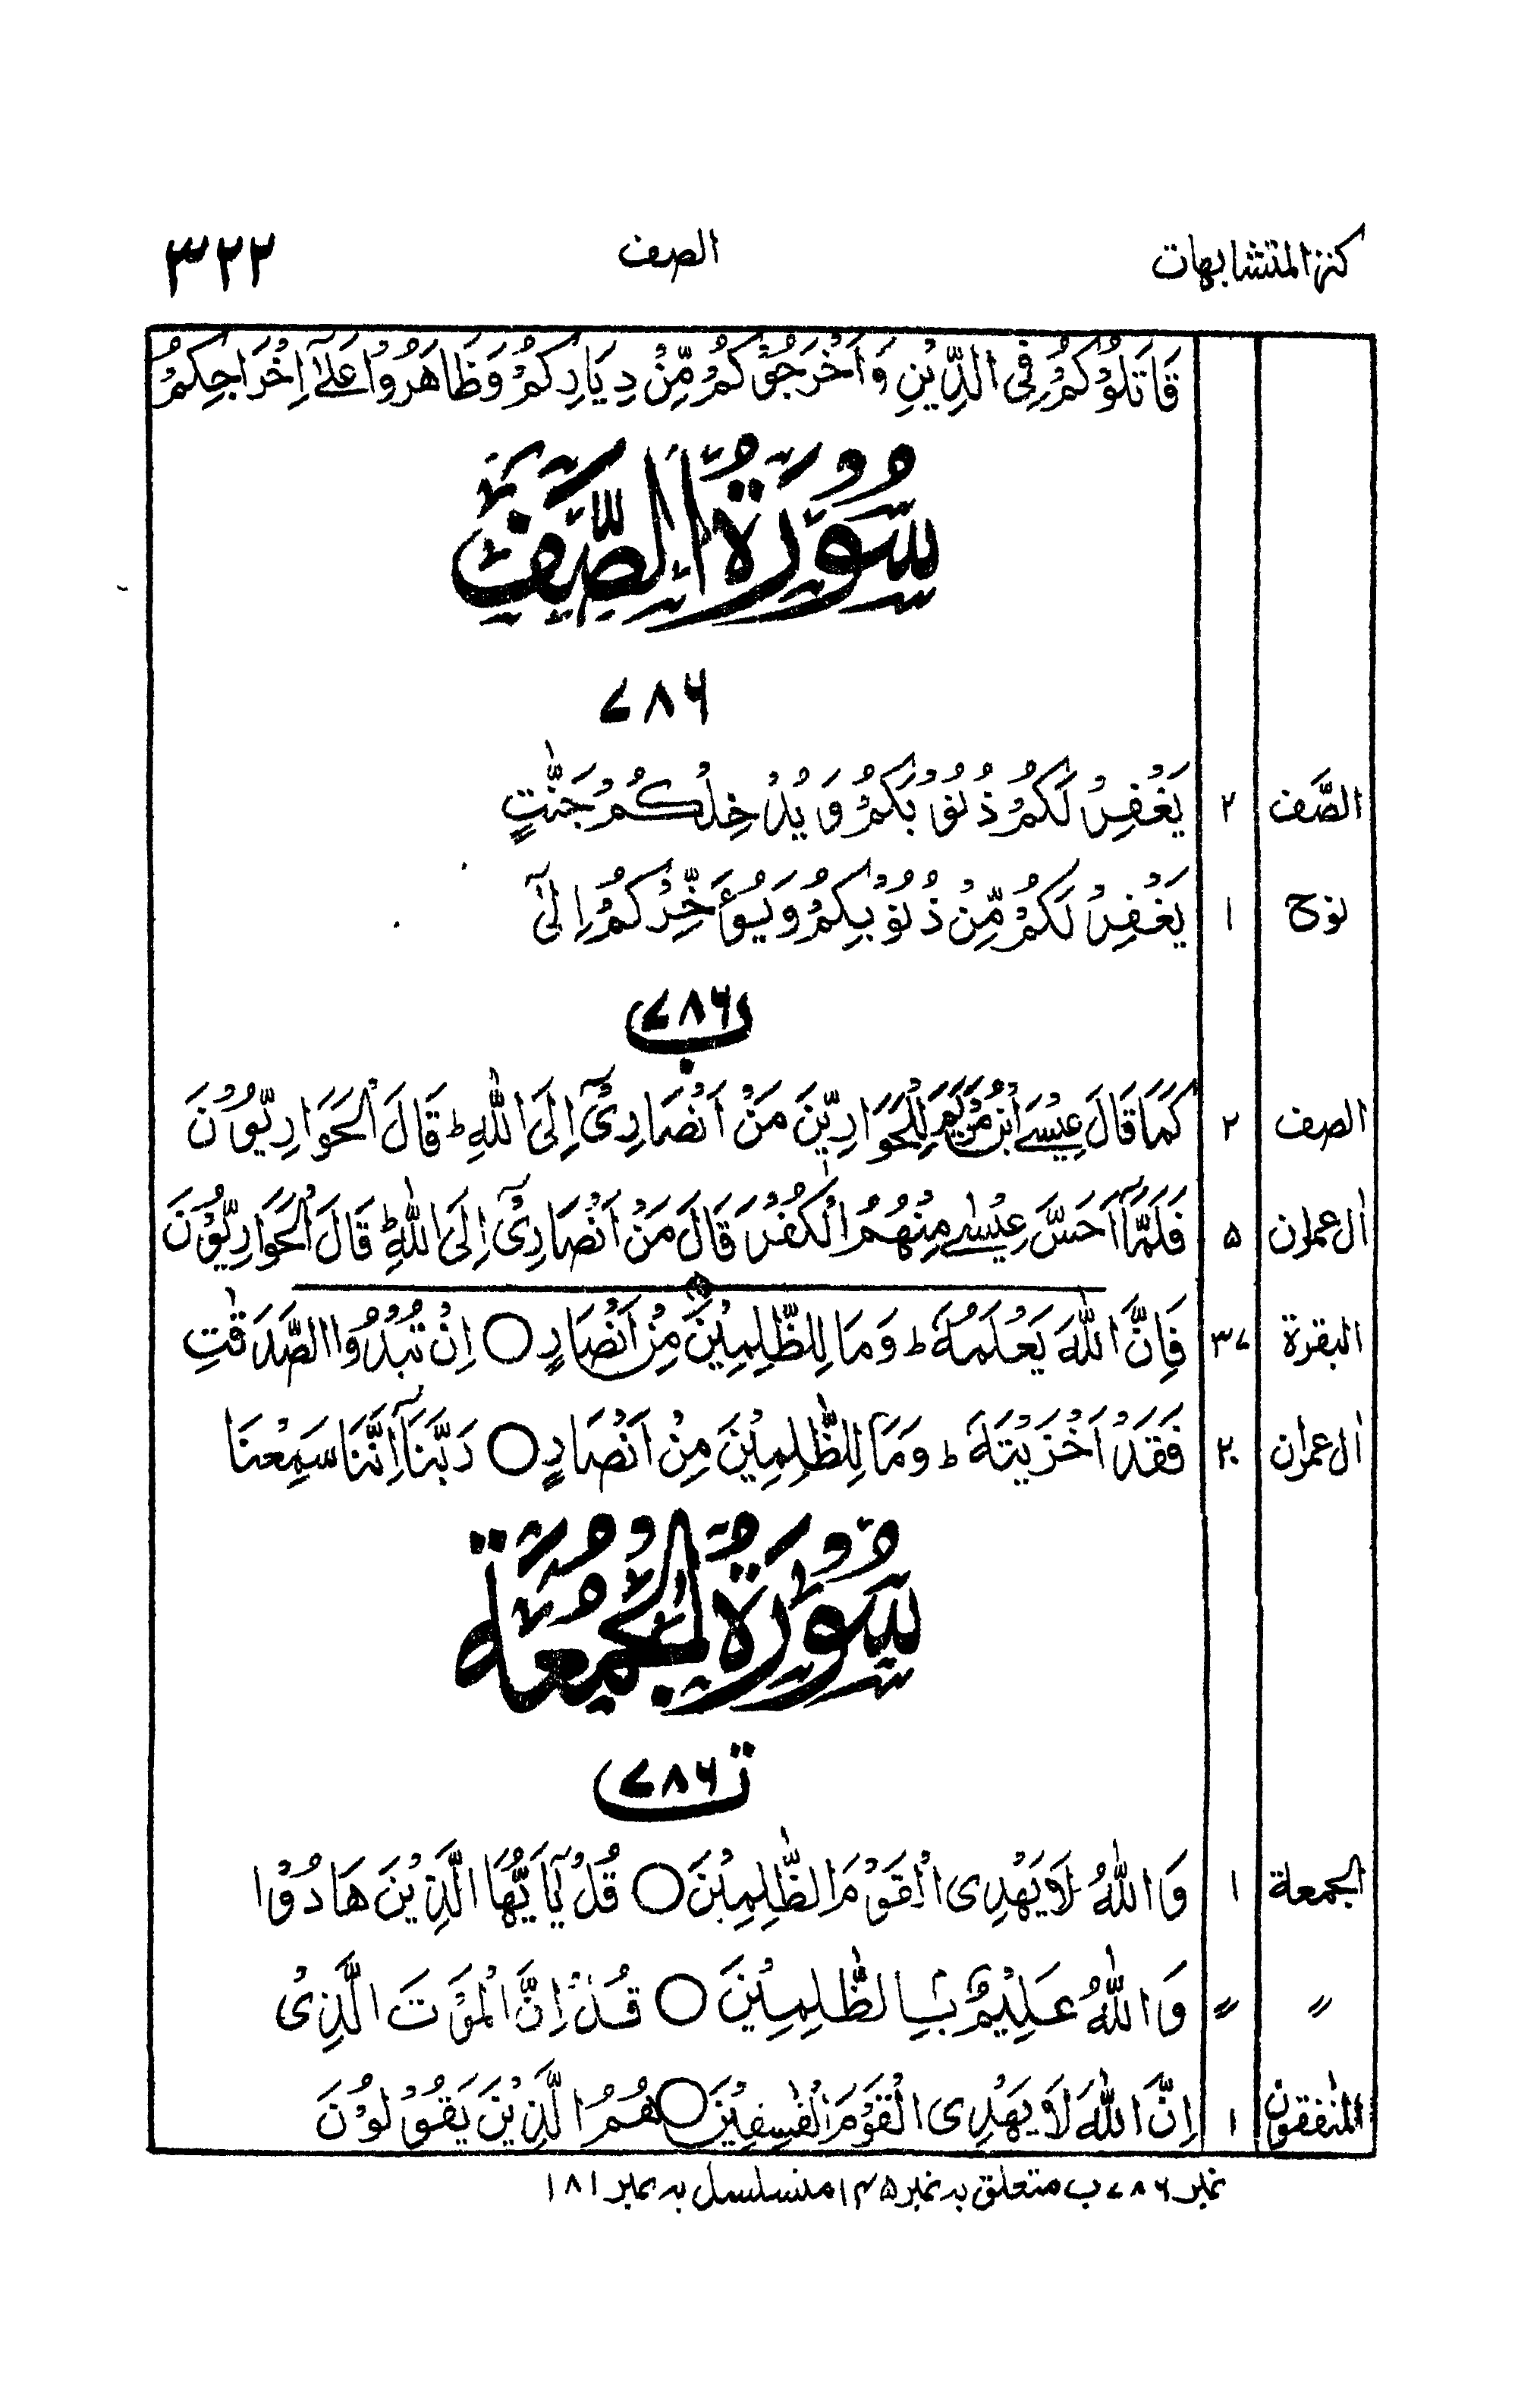 كنز المتشابهات الصف ٣٢٢
قَاتَلُوْكُمْ فِى الدِّيْنِ وَاَخْرَجُوْكُمْ مِّنْ دِيَارِكُمْ وَظَاهَرُوْا عَلٰٓى اِخْرَاجِكُمْ
سُوْرَةُ الصَّفِّ
٧٨٦
الصَّف ٢ يَغْفِرْ لَكُمْ ذُنُوْبَكُمْ وَيُدْخِلْكُمْ جَنّٰتٍ
نوح ١ يَغْفِرْ لَكُمْ مِّنْ ذُنُوْبِكُمْ وَيُؤَخِّرْكُمْ اِلٰٓى
٧٨٦ ب
الصف ٢ كَمَا قَالَ عِيْسَى ابْنُ مَرْيَمَ لِلْحَوَارِيّٖنَ مَنْ اَنْصَارِىْٓ اِلَى اللّٰهِ ؕ قَالَ الْحَوَارِيُّوْنَ
اٰل عمرٰن ۵ فَلَمَّآ اَحَسَّ عِيْسٰى مِنْهُمُ الْكُفْرَ قَالَ مَنْ اَنْصَارِىْٓ اِلَى اللّٰهِ ؕ قَالَ الْحَوَارِيُّوْنَ
البقرة ٣٧ فَاِنَّ اللّٰهَ يَعْلَمُهٗ ؕ وَمَا لِلظّٰلِمِيْنَ مِنْ اَنْصَارٍ ○ اِنْ تُبْدُوا الصَّدَقٰتِ
اٰل عمرٰن ٢٠ فَقَدْ اَخْزَيْتَهٗ ؕ وَمَا لِلظّٰلِمِيْنَ مِنْ اَنْصَارٍ ○ رَبَّنَآ اِنَّنَا سَمِعْنَا
سُوْرَةُ الْجُمُعَةِ
٧٨٦ ت
الجمعة ١ وَاللّٰهُ لَا يَهْدِى الْقَوْمَ الظّٰلِمِيْنَ ○ قُلْ يٰٓاَيُّهَا الَّذِيْنَ هَادُوْٓا
〃 〃 وَاللّٰهُ عَلِيْمٌۢ بِالظّٰلِمِيْنَ ○ قُلْ اِنَّ الْمَوْتَ الَّذِىْ
المنٰفقون ١ اِنَّ اللّٰهَ لَا يَهْدِى الْقَوْمَ الْفٰسِقِيْنَ ○ هُمُ الَّذِيْنَ يَقُوْلُوْنَ
نمبر ٧٨٦ ب متعلق بہ نمبر ١٤٥ منسلسل بہ نمبر ١٨١